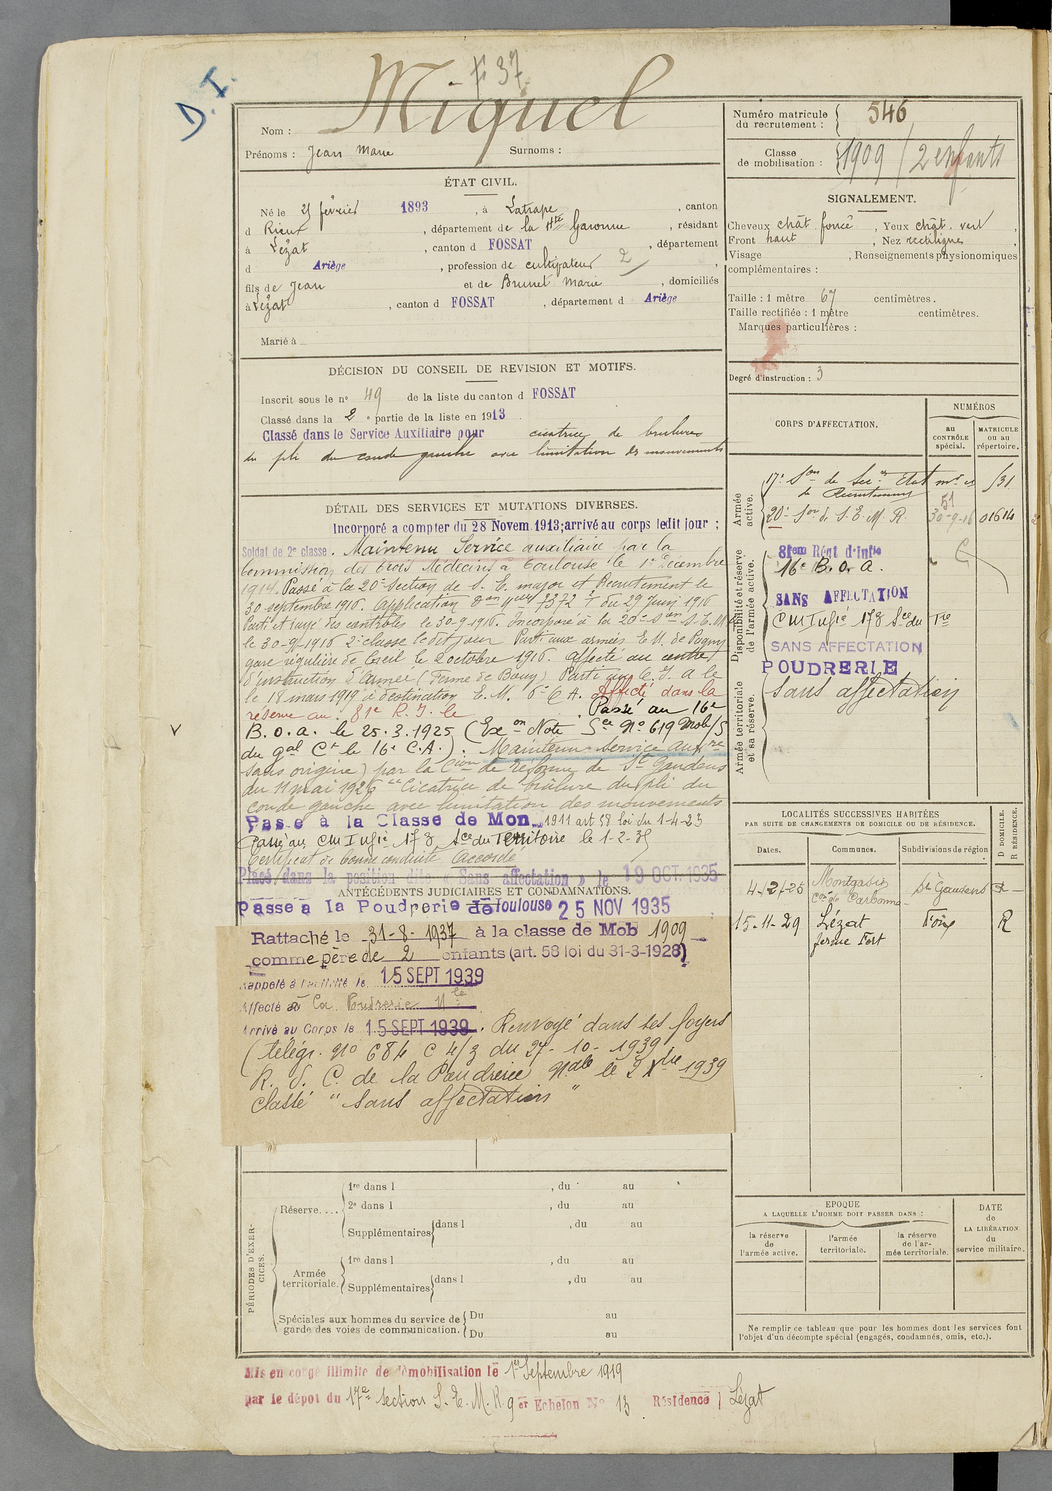 D.I.
F 37.
Nom : Miquel
Prénoms : Jean Marie Surnoms :
Numéro matricule du recrutement : 546
Classe de mobilisation : 1909 / 2 enfants
ÉTAT CIVIL.
Né le 25 février 1893, à Latrape, canton
d Rieux, département de la Hte Garonne, résidant
à Lézat, canton d FOSSAT, département
d Ariège, profession de cultivateur 2
fils de Jean et de Brunet Marie, domiciliés
à Lézat, canton d FOSSAT, département d Ariège
Marié à
SIGNALEMENT.
Cheveux chât. foncé, Yeux chât. vert,
Front haut, Nez rectiligne,
Visage , Renseignements physionomiques
complémentaires :
Taille : 1 mètre 67 centimètres.
Taille rectifiée : 1 mètre centimètres.
Marques particulières :
Degré d'instruction : 3
DÉCISION DU CONSEIL DE REVISION ET MOTIFS.
Inscrit sous le n° 49 de la liste du canton d FOSSAT
Classé dans la 2e partie de la liste en 1913.
Classé dans le Service Auxiliaire pour cicatrice de brulures
du pli du coude gauche avec limitation des mouvements
DÉTAIL DES SERVICES ET MUTATIONS DIVERSES.
Incorporé a compter du 28 Novem. 1913; arrivé au corps ledit jour ;
Soldat de 2e classe. Maintenu Service auxiliaire par la
Commission des trois Médecins à Toulouse le 1er Décembre
1914. Passé à la 20e Section de S. E. major et Recrutement le
30 septembre 1916. Application 7372 du 29 Juin 1916
Parti et rayé des contrôles le 30-9-1916. Incorporé à la 20e Son S.E.M.
le 30-9-1916 2e classe le dit jour. Parti aux armées E.M. de
gare régulière de Creil le 2 octobre 1916. affecté au centre
d'Instruction d'armée (Ferme de Bouy) Parti au C.I.A le
le 18 mars 1919 à destination E.M. 6e C.A. Affecté dans la
réserve au 81e R.I. le . Passé au 16e
B.O.a. le 25.3.1925 (Exon Note Sce N° 619 Mob/S
du gal Ct le 16e C.A.). Maintenu Service auxre
sans origine) par la Cion de réforme de St Gaudens
du 11 mai 1926 "Cicatrice de brûlure du pli du
coude gauche avec limitation des mouvements
Passé à la Classe de Mon 1911 art 58 loi du 1-4-23
Passé au CM Infie 178 Sce du Territoire le 1-2-35
Certificat de bonne conduite Accordé
Placé dans la position dite « Sans affectation » le 19 OCT. 1935
ANTÉCÉDENTS JUDICIAIRES ET CONDAMNATIONS.
Passé à la Poudrerie de Toulouse 25 NOV 1935
Rattaché le 31-8-1937 à la classe de Mob 1909
comme père de 2 enfants (art. 58 loi du 31-3-1928)
Rappelé à l'activité le 15 SEPT 1939
Affecté à la Poudrerie Nle
Arrivé au Corps le 15 SEPT 1939. Renvoyé dans ses foyers
(télégr. N° 684 C 4/3 du 27-10-1939
R. D. C. de la Poudrerie Nale le 2 Xbre 1939
classé "sans affectation"
CORPS D'AFFECTATION.
NUMÉROS
au CONTRÔLE spécial.
MATRICULE ou au répertoire.
Armée active.
17e Son de Secres Etat mr et 531
de Recrutement 51
20e Son de S.E.M.R. 30-9-16 01614
Disponibilité et réserve de l'armée active.
81em Régt d'Infie
16e B.O.a.
SANS AFFECTATION
CM Infie 178 Sce du Tre
SANS AFFECTATION
POUDRERIE
Armée territoriale et sa réserve.
Sans affectation
LOCALITÉS SUCCESSIVES HABITÉES
PAR SUITE DE CHANGEMENTS DE DOMICILE OU DE RÉSIDENCE.
Dates. Communes. Subdivisions de région D DOMICILE. R RÉSIDENCE.
4-2-25 Montgazin Con de Carbonne St Gaudens D
15-11-29 Lézat ferme Fort Foix R
PÉRIODES D'EXERCICES.
Réserve.... 1re dans l , du au
2e dans l , du au
Supplémentaires dans l , du au
Armée territoriale. 1re dans l , du au
Supplémentaires dans l , du au
Spéciales aux hommes du service de garde des voies de communication. Du au
Du au
EPOQUE
A LAQUELLE L'HOMME DOIT PASSER DANS :
la réserve de l'armée active.
l'armée territoriale.
la réserve de l'armée territoriale.
DATE de LA LIBÉRATION du service militaire.
Ne remplir ce tableau que pour les hommes dont les services font
l'objet d'un décompte spécial (engagés, condamnés, omis, etc.).
Mis en congé illimité de démobilisation le 1er Septembre 1919
par le dépôt du 17e Section S.E.M.R. 9 er Echelon N° 13 Résidence Lézat